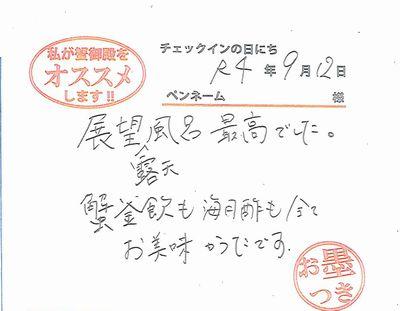 私が蟹御殿を
オススメ
します!!
チェックインの日にち
R4年9月12日
ペンネーム 様
展望風呂 最高でした。
露天
蟹釜飯も海月酢も全て
お美味かったです.
お墨
つき